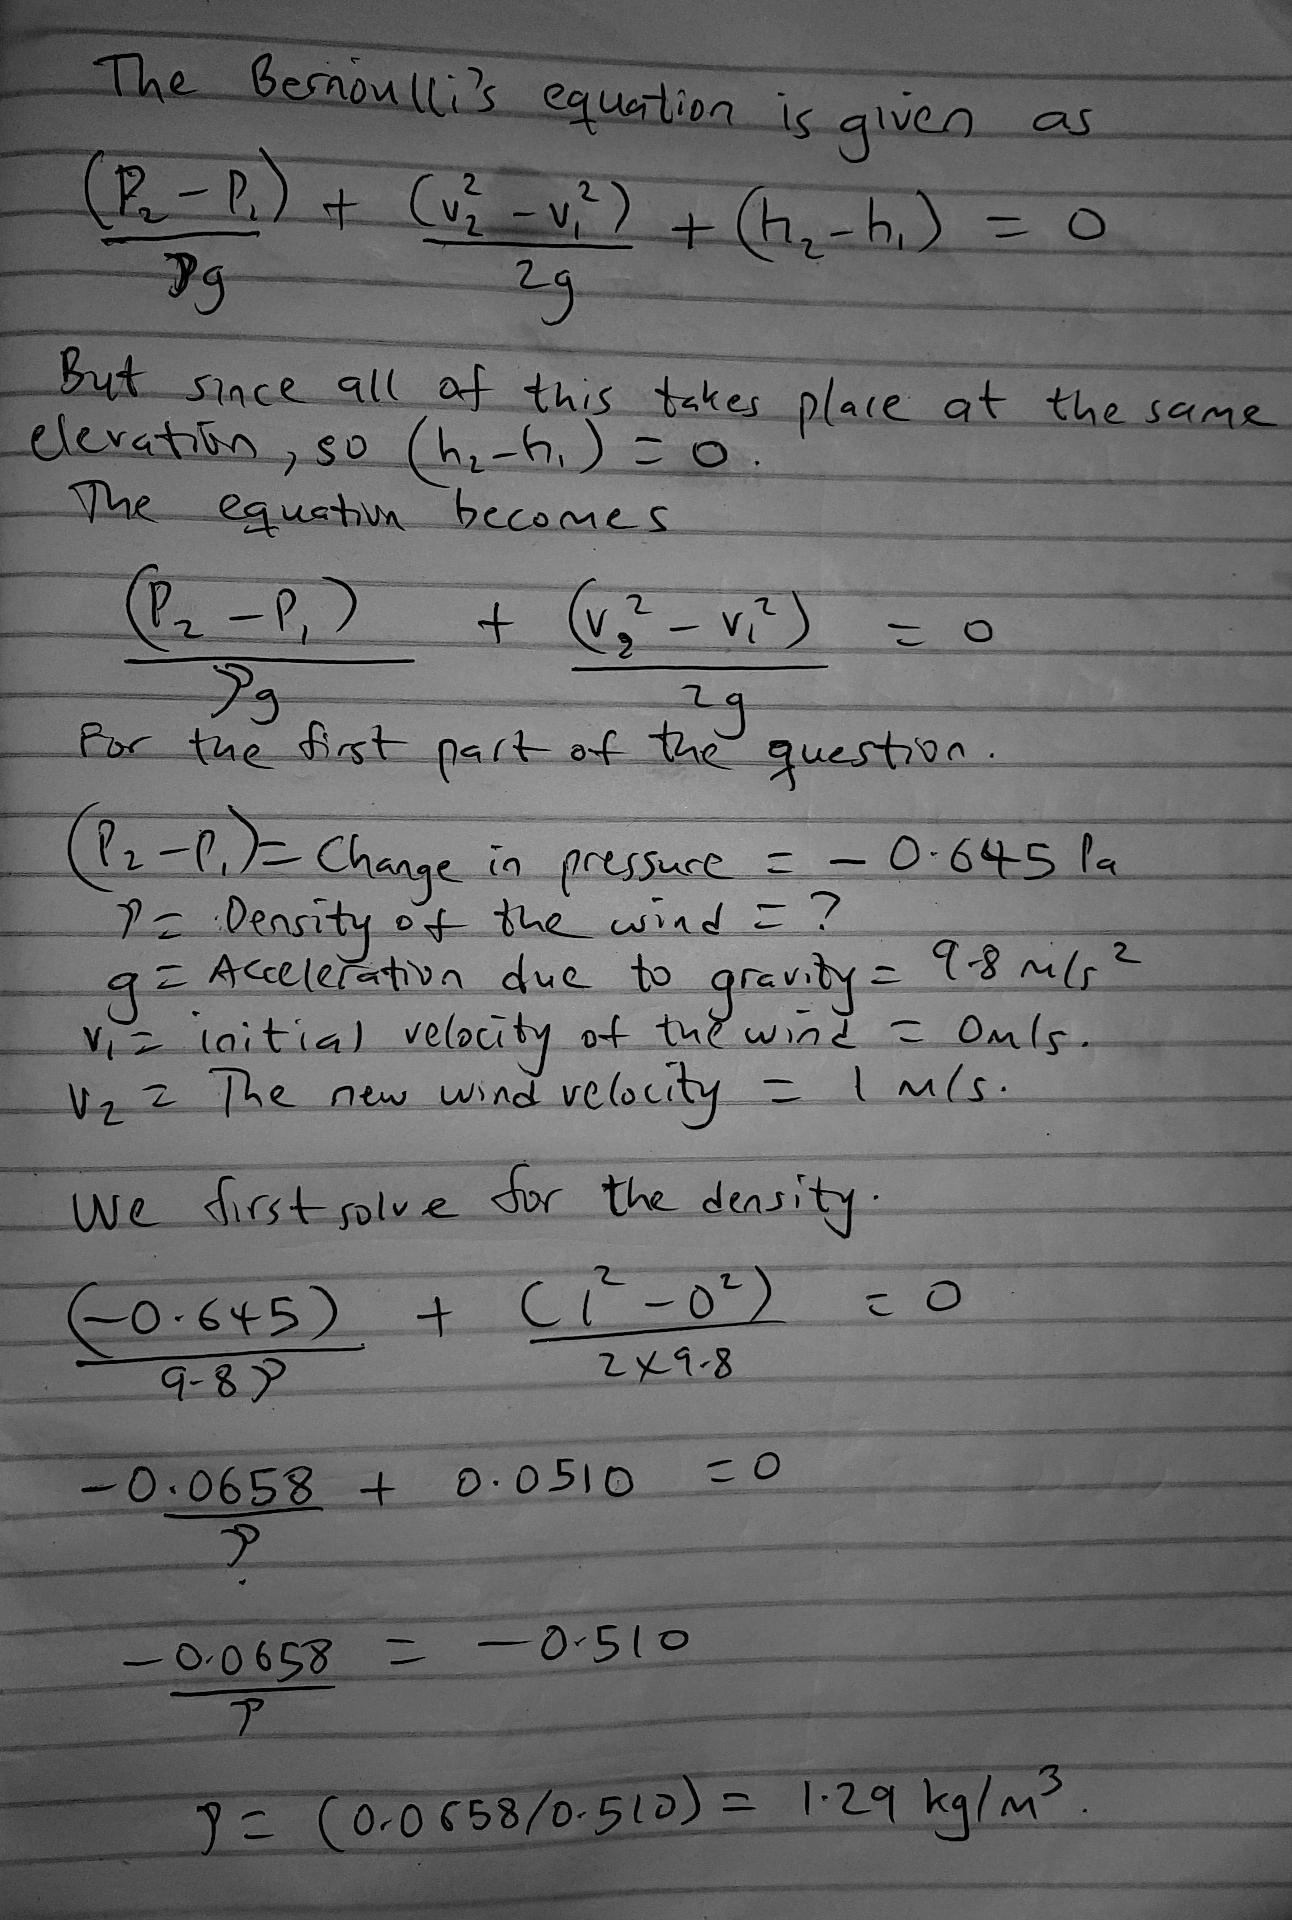 The Bernoulli's equation is given as
(P₂ - P₁) + (v₂² - v₁²) + (h₂-h₁) = 0
ρg 2g
But since all of this takes place at the same
elevation, so (h₂-h₁) = 0.
The equation becomes
(P₂ - P₁) + (v₂² - v₁²) = 0
ρg 2g
For the first part of the question.
(P₂-P₁) = Change in pressure = - 0.645 Pa
ρ = Density of the wind = ?
g = Acceleration due to gravity = 9.8 m/s²
v₁ = initial velocity of the wind = 0m/s.
v₂ = The new wind velocity = 1 m/s.
We first solve for the density.
(-0.645) + (1² - 0²) = 0
9.8ρ 2×9.8
-0.0658 + 0.0510 = 0
ρ
-0.0658 = -0.510
ρ
ρ = (0.0658/0.510) = 1.29 kg/m³.